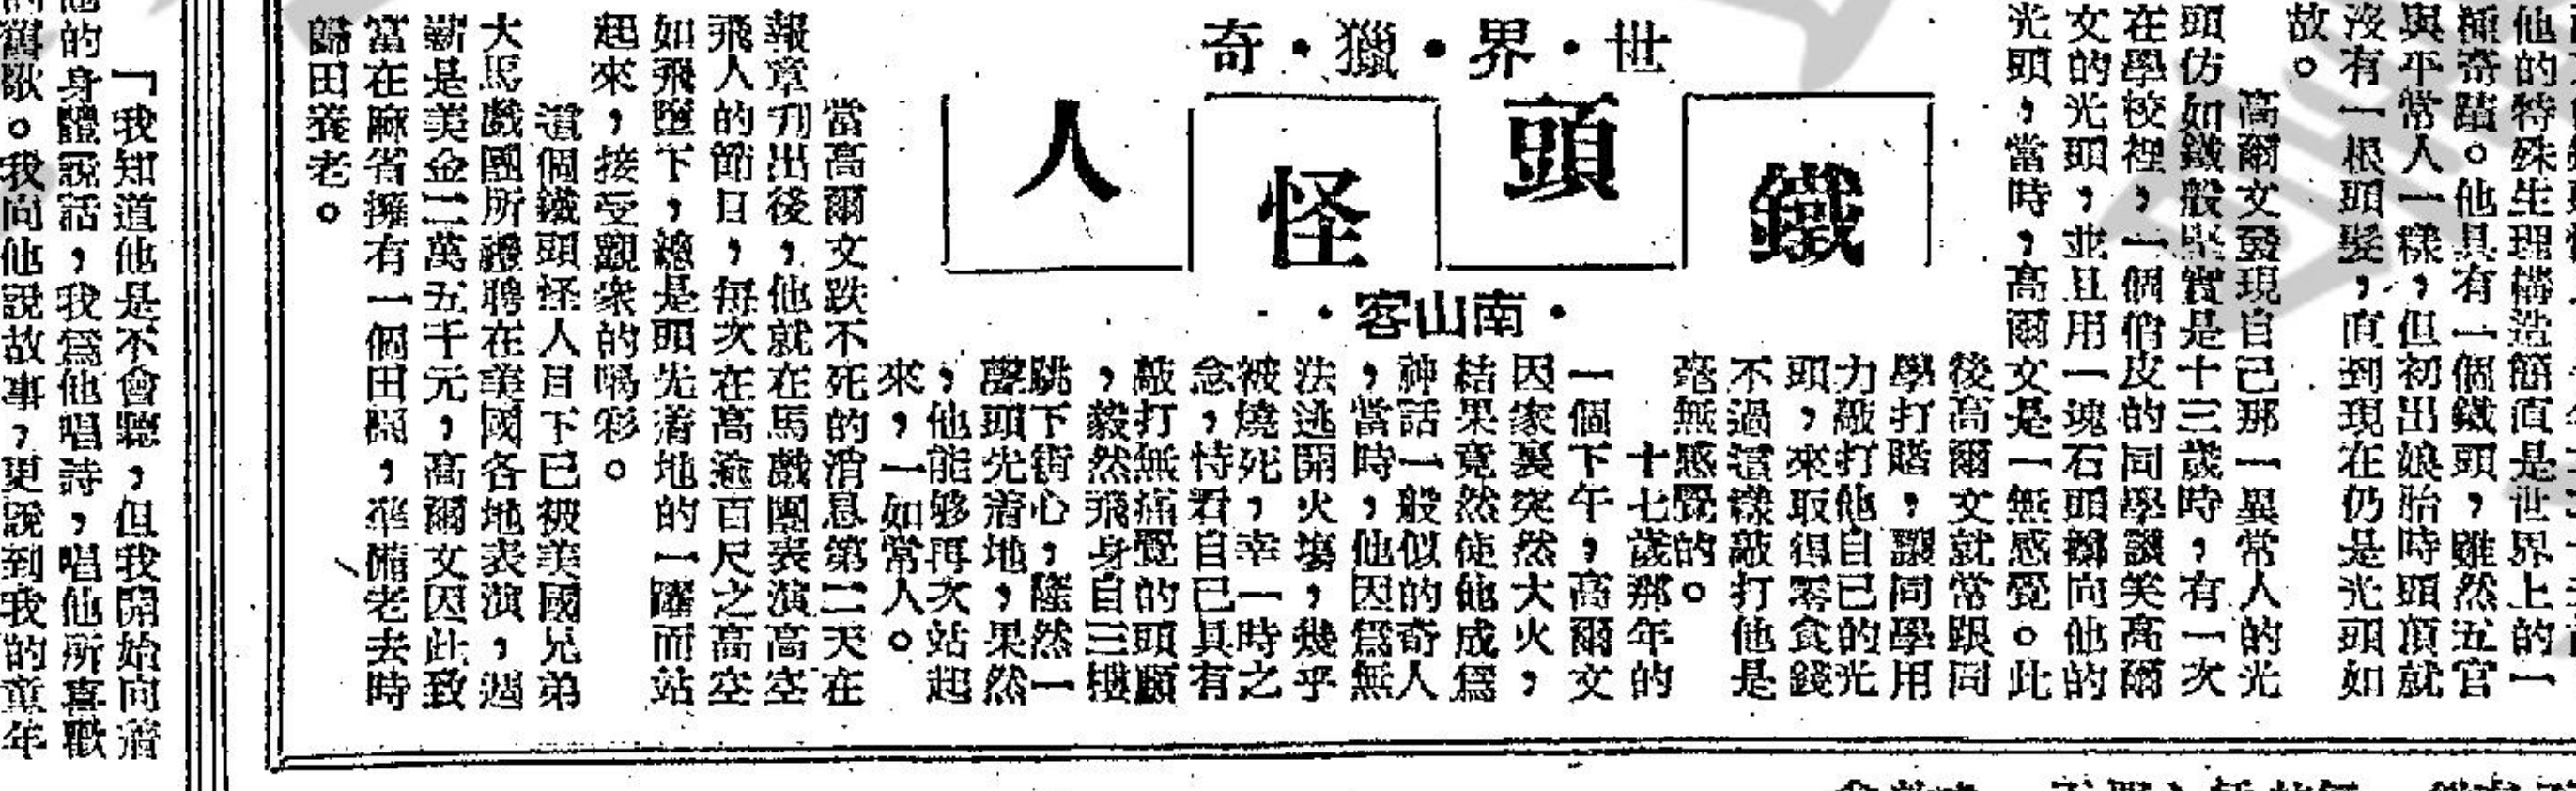 他的特殊生理構造簡直是世界上的一
種奇蹟。他具有一個鐵頭，雖然五官
與平常人一樣，但初出娘胎時頭頂就
沒有一根頭髮，直到現在仍是光頭如
故。
高爾文發現自己那一異常人的光
頭仿如鐵般堅實是十三歲時，有一次
在學校裡，一個俏皮的同學譏笑高爾
文的光頭，並且用一塊石頭擲向他的
光頭，當時，高爾文是一無感覺。此
世·界·獵·奇
鐵頭怪人
·南山客·
後高爾文就常跟同
學打賭，讓同學用
力敲打他自己的光
頭，來取得零食錢
不過這樣敲打他是
毫無感覺的。
十七歲那年的
一個下午，高爾文
因家裏突然大火，
結果竟然使他成爲
神話一般似的奇人
，當時，他因爲無
法逃開火塲，幾乎
被燒死，幸一時之
念，恃着自己具有
敲打無痛覺的頭顱
，毅然飛身自三樓
跳下街心，隆然一
聲頭先着地，果然
，他能够再次站起
來，一如常人。
當高爾文跌不死的消息第二天在
報章刋出後，他就在馬戲團表演高空
飛人的節目，每次在高逾百尺之高空
如飛墮下，總是頭先着地的一躍而站
起來，接受觀衆的喝彩。
這個鐵頭怪人目下已被美國兄弟
大馬戲團所禮聘在美國各地表演，週
薪是美金二萬五千元，高爾文因此致
富在麻省擁有一個田園，準備老去時
歸田養老。
「我知道他是不會聽，但我開始向着
他的身體說話，我爲他唱詩，唱他所喜歡
的舊歌。我向他說故事，更說到我的童年